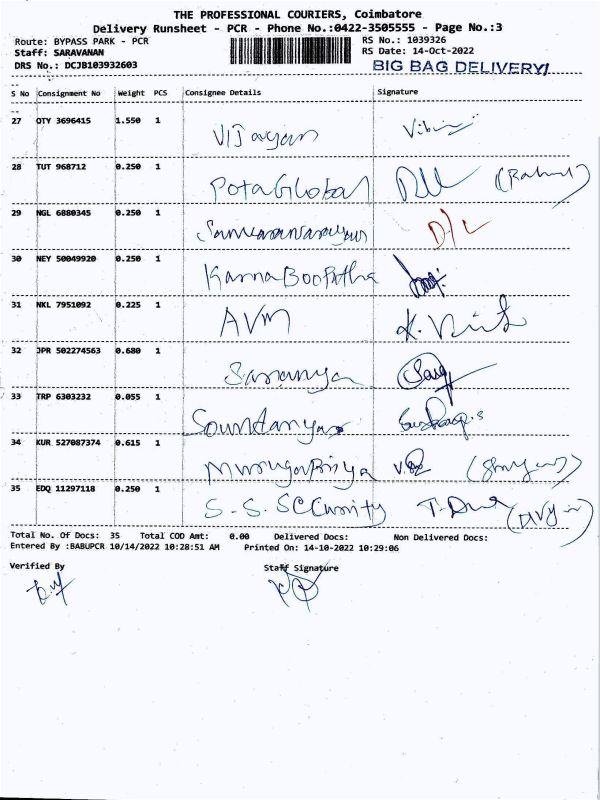 THE PROFESSIONAL COURIERS, Coimbatore
Delivery Runsheet - PCR - Phone No.:0422-3505555 - Page No.:3
Route: BYPASS PARK - PCR RS No.: 1039326
Staff: SARAVANAN RS Date: 14-Oct-2022
DRS No.: DCJB103932603 BIG BAG DELIVERY!
S No Consignment No Weight PCS Consignee Details Signature
27 OTY 3696415 1.550 1 Vijayan
28 TUT 968712 0.250 1 PotaGlobal (Rahul)
29 NGL 6880345 0.250 1 D/L
30 NEY 50049920 0.250 1 KannaBoopatha
31 NKL 7951092 0.225 1 AVM
32 JPR 502274563 0.680 1 Saranya
33 TRP 6303232 0.055 1 Soundarya
34 KUR 527087374 0.615 1 MurugaPriya
35 EDQ 11297118 0.250 1 S.S. Security
Total No. Of Docs: 35 Total COD Amt: 0.00 Delivered Docs: Non Delivered Docs:
Entered By :BABUPCR 10/14/2022 10:28:51 AM Printed On: 14-10-2022 10:29:06
Verified By Staff Signature